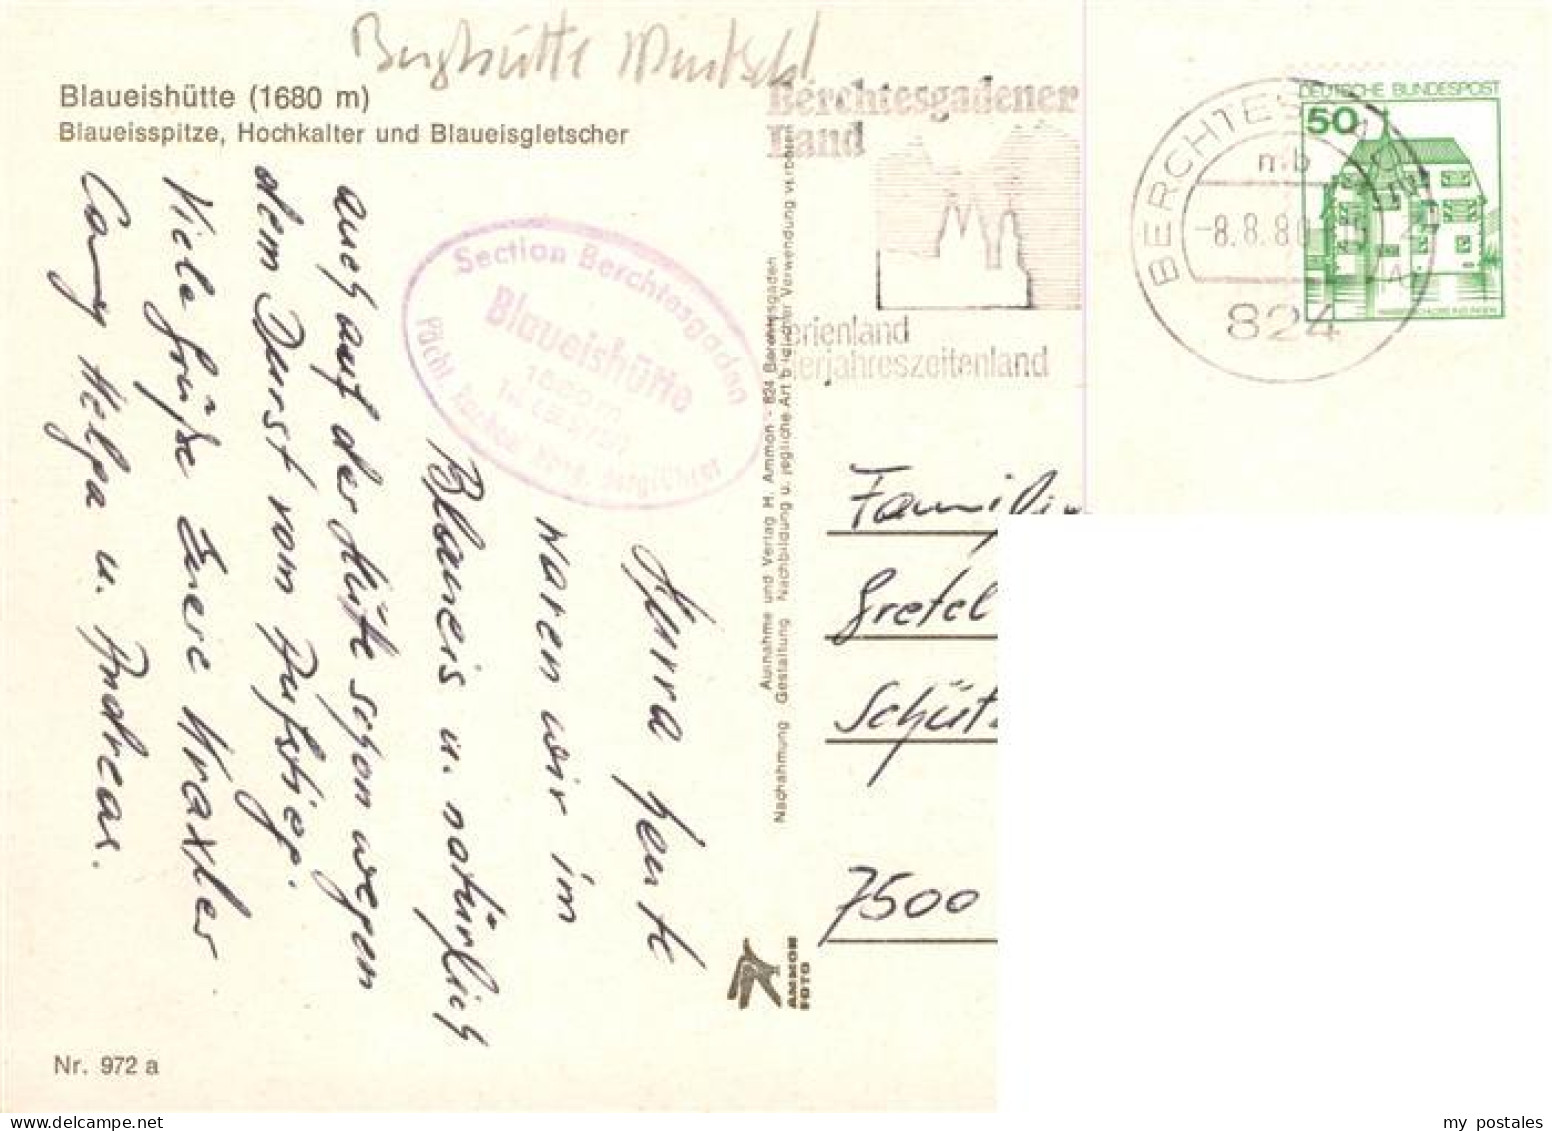 Berghütte
Blaueishütte (1680 m)
Blaueisspitze, Hochkalter und Blaueisgletscher
Hurra heute
waren wir im
Blaueis u. natürlich
auch auf der Hütte schon wegen
dem Durst vom Aufstieg.
Viele Grüße Eure Kraxler
Conny Helga u. Andreas.
Section Berchtesgaden
Blaueishütte
1680 m
Nr. 972 a
Aufnahme und Verlag H. Ammon - 824 Berchtesgaden
Nachahmung Gestaltung Nachbildung u. jegliche Art bildlicher Verwendung verboten
AMMON
FOTO
Berchtesgadener
Land
erienland
erjahreszeitenland
BERCHTESGADEN
mb
-8.8.80
824
DEUTSCHE BUNDESPOST
50
Familie
Gretel
Schüt
7500
my postales